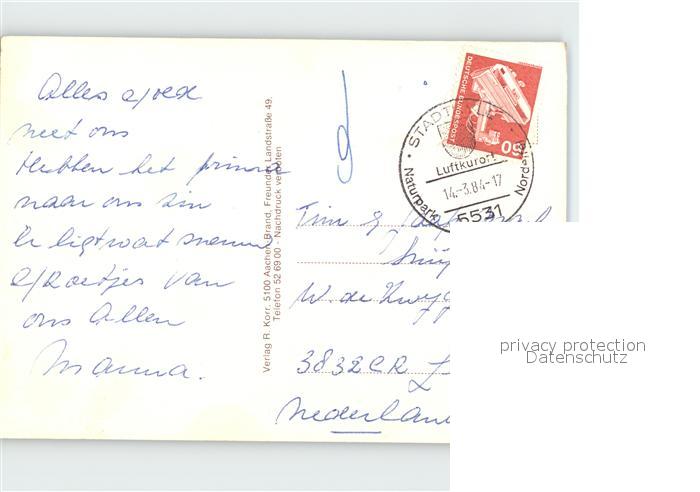 Alles goed
met ons
Hebben het prima
naar ons zin
Er ligt wat sneeuw
groetjes van
ons Allen
Mama.
Verlag R. Korr. 5100 Aachen-Brand, Freunder Landstraße 49.
Telefon 52 69 00 · Nachdruck verboten
DEUTSCHE BUNDESPOST
60
STADT
Luftkurort
14.-3.84-17
Naturpark Nordeifel
5531
Tim &
W. de
3832 CR L
Nederland
privacy protection
Datenschutz